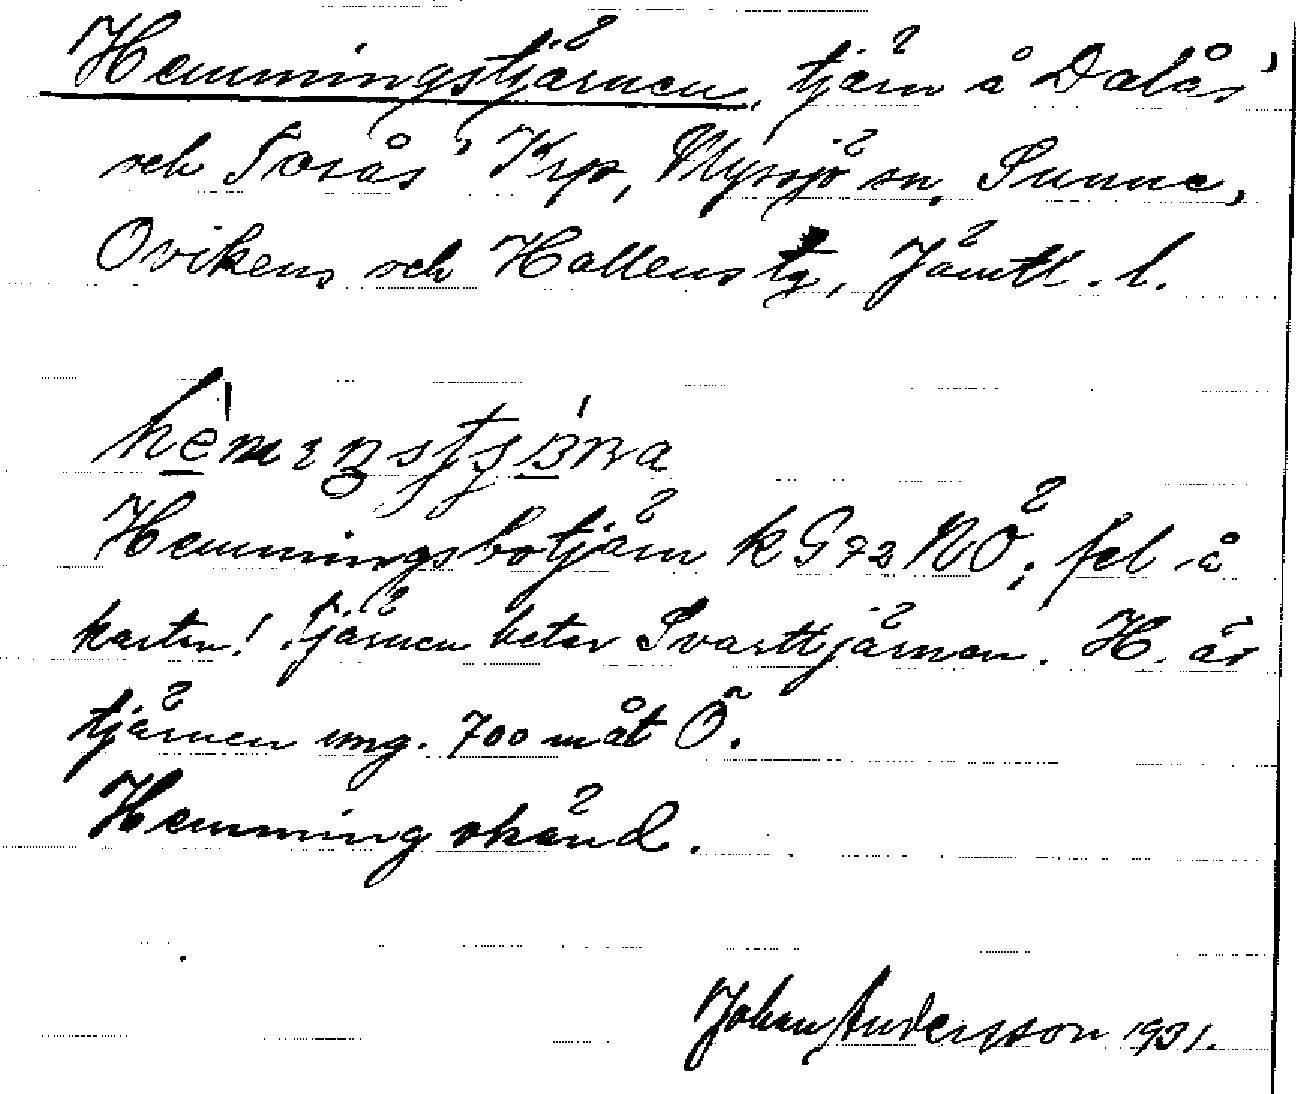 Hemmingstjärnen, tjärn å Dalås'
och Torås' Krp, Myssjö sn, Sunne,
Ovikens och Hallens tg, Jämtl. l.
Hemmingsbotjärn k G 72 NÖ; fel å
kartan! Tjärnen heter Svarttjärnen. H. är
tjärnen ung. 700 m åt Ö.
Hemming okänd.
Johan Andersson 1931.